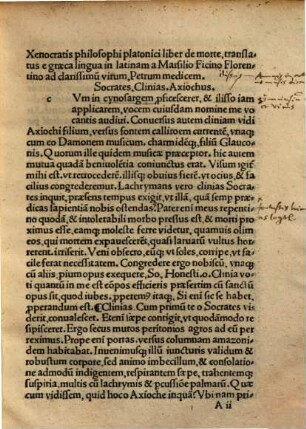 Xenocratis philosophi platonici liber de morte, transla
tus e græca lingua in latinam a Marsilio Ficino Floren
tino ad clarissimũ virum, Petrum medicem.
Socrates, Clinias. Axiochus.
c Vm in cynosargem p̃ficescerer, & ilisso iam
applicarem, vocem cuiusdam nomine me vo
cantis audiui. Conuersus autem cliniam vidi
Axiochi filium, versus fontem callitoem currentẽ, vnaq̃
cum Damonem musicum. charmidẽq̃, filiũ Glauco
nis. Quorum ille quidem musicæ p̃ceptor, hic autem
mutua quadã beniuolẽtia coniunctus erat. Visum igit̃
mihi est. vt reuocederẽ. illisq̃ obuius fierẽ. vt ocius, & fa
cilius congrederemur. Lachrymans vero clinias Socra
tes inquit, præsens tempus exigit, vt illã, quã semp̃ prædi
cas sapientiã nobis ostendas. Pater eni meus repenti
no quodã, & intolerabili morbo pressus est, & morti p̃
ximus esse, eamq̃ moleste ferre videtur, quamuis olim
eos, qui mortem expauescerẽt, quasi laruarũ vultus hor
rerent. irriserit. Veni obsecro, eũq̃ vt soles, corripe, vt fa
cile ferat necessitatem. Congredere ergo nobiscũ, vnaq̃
cũ aliis pium opus exequere, So, Honesti. o. Clinia vo
ti quantũ in me est eõpos efficieris præsertim cũ sancti
opus sit, quod iubes, p̃peremꝰ itaq̃. Si eni se se habet,
p̃perandum est. Clinias, Cum primũ te o Socrates vis
derit, conualescet. Eteni iæpe contigit, vt quodãmodo re
spisceret. Ergo secus muros peritonios agros ad eũ per
reximus. Prope eni portas, versus columnam amazoni
dem habitabat. Inuenimusq̃ illũ iuncturis validum &
robustum corpore, sed animo imbecillum, & consolatio
ne admodũ indigentem, respirantem sæpe, trahentemq̃
suspiria, multis cũ lachrymis & pcussiõe palmarũ. Quæ
cum vidissem, quid hoc o Axioche inquã? Vbi nam pri
A ii